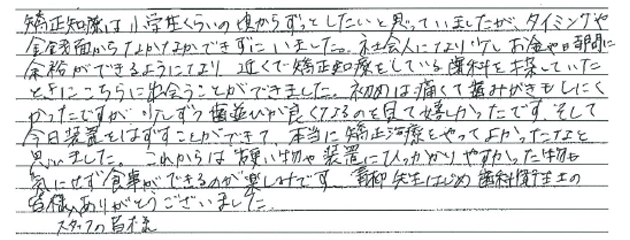 矯正知療は小学生くらいの頃からずっとしたいと思っていましたが、タイミングや
金銭面からなかなかできずにいました。社会人になり少しお金や時間に
余裕ができるようになり 近くで矯正知療をしている歯科を探していた
ときにこちらに出会うことができました。初めは痛くて歯みがきもしにく
かったですが 少しずつ歯並びが良くなるのを見て嬉しかったです。そして
今日装置をはずすことができて、本当に矯正治療をやってよかったなと
思いました。これからは硬い物や装置にひっかかりやすかった物も
気にせず食事ができるのが楽しみです 青柳先生はじめ歯科衛生士の
皆様、ありがとうございました。
スタッフの皆様